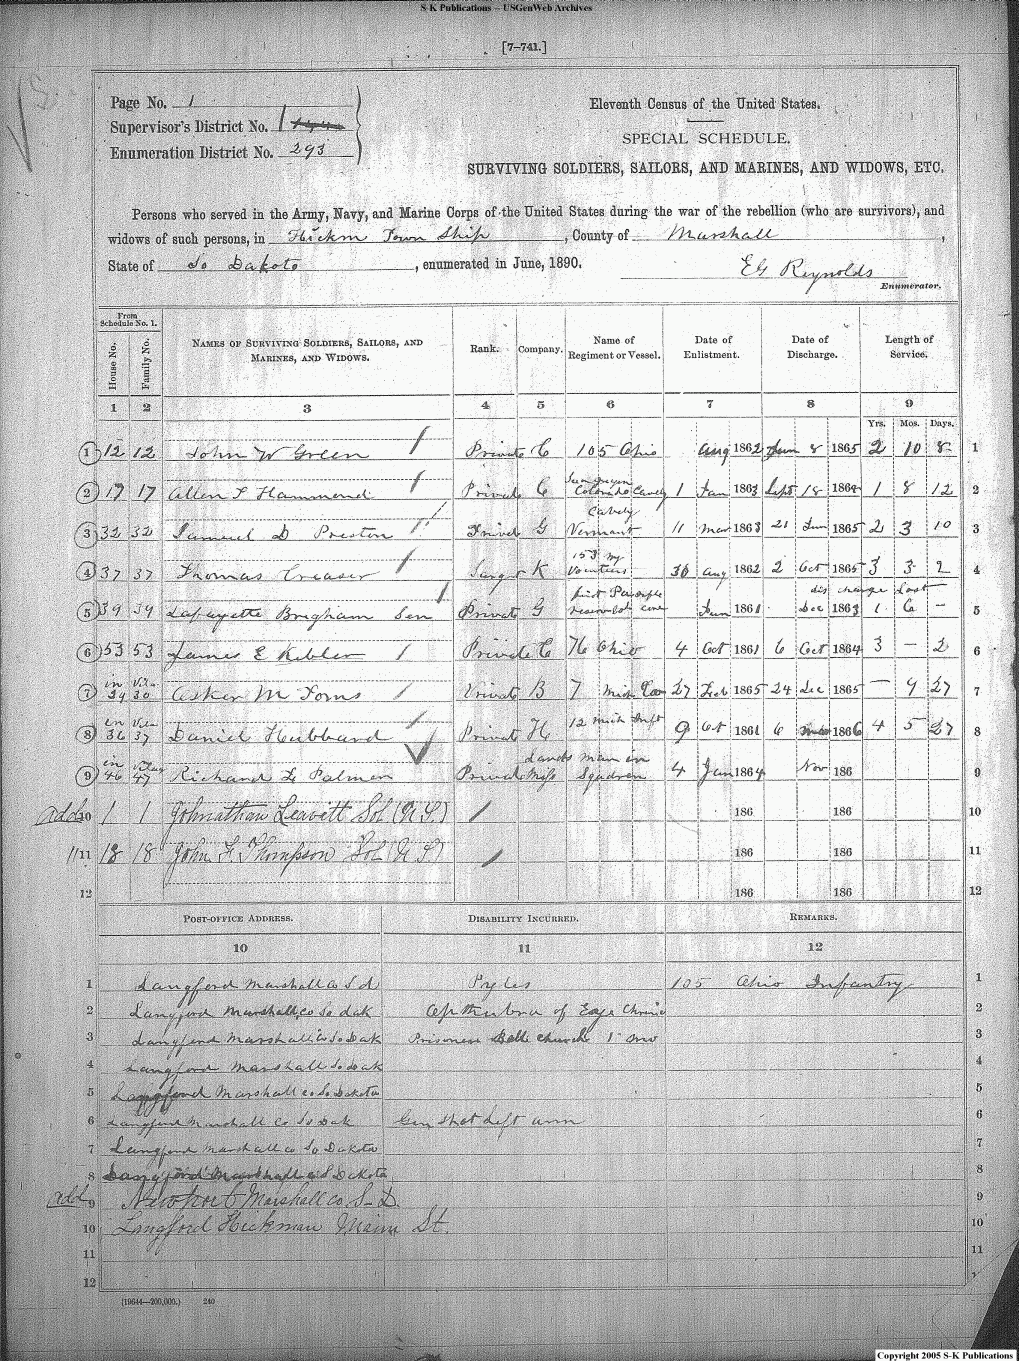 S-K Publications – USGenWeb Archives
[7–741.]
Page No. 1
Supervisor's District No. 1
Enumeration District No. 293
Eleventh Census of the United States.
SPECIAL SCHEDULE.
SURVIVING SOLDIERS, SAILORS, AND MARINES, AND WIDOWS, ETC.
Persons who served in the Army, Navy, and Marine Corps of the United States during the war of the rebellion (who are survivors), and
widows of such persons, in Hickm Town Ship, County of Marshall,
State of So Dakota, enumerated in June, 1890. EG Reynolds
Enumerator.
From Schedule No. 1.
House No. Family No. NAMES OF SURVIVING SOLDIERS, SAILORS, AND MARINES, AND WIDOWS. Rank. Company. Name of Regiment or Vessel. Date of Enlistment. Date of Discharge. Length of Service.
1 2 3 4 5 6 7 8 9
Yrs. Mos. Days.
1 12 12 John W Green Private C 105 Ohio Aug 1862 Jun 8 1865 2 10 8 1
2 17 17 Allen F Hammond Private C Colorado Cavely 1 Jan 1863 Sept 18 1864 1 8 12 2
3 32 32 Samuel D Preston Privat G Cavely Vermont 11 Mar 1863 21 Jun 1865 2 3 10 3
4 37 37 Thomas Creaser Sargt K 153 ny Vounteers 30 Aug 1862 2 Oct 1865 3 3 2 4
5 39 39 Lafayette Brigham Sen Private G Jun 1861 discharge Lost Dec 1863 1 6 – 5
6 53 53 James E Kebler Private C 76 Ohio 4 Oct 1861 6 Oct 1864 3 – 2 6
7 in Vila 29 30 Asken M Foms Private B 7 Mich 27 Feb 1865 24 Dec 1865 – 9 27 7
8 in Vila 36 37 Daniel Hubbard Private H 12 Mich Inft 9 Oct 1861 6 1866 4 5 27 8
9 in Villag 46 47 Richard L Palmer Private Lands man in Miss Squadron 4 Jun 1864 Nov 186 9
add 10 1 1 Johnathan Leavitt Sol (U.S.) 186 186 10
11 18 18 John F. Thompson Sol (U.S) 186 186 11
12 186 186 12
POST-OFFICE ADDRESS. DISABILITY INCURRED. REMARKS.
10 11 12
1 Langford Marshall co S d Pyles 105 Ohio Infantry 1
2 Langford Marshall co So dak of Eage Chronic 2
3 Langford Marshall co So Dak Prisoner Bell church 1 mo 3
4 Langford Marshall So dak 4
5 Langford Marshall co So Dakota 5
6 Langford Marshall co So Dak Gun Shot Left arm 6
7 Langford Marshall co So Dakota 7
8 Langford Marshall co S Dakota 8
add 9 Newport Marshall co, S. D. 9
10 Langford Hickman Main St. 10
11 11
12
(19644—200,000.) 240
Copyright 2005 S-K Publications